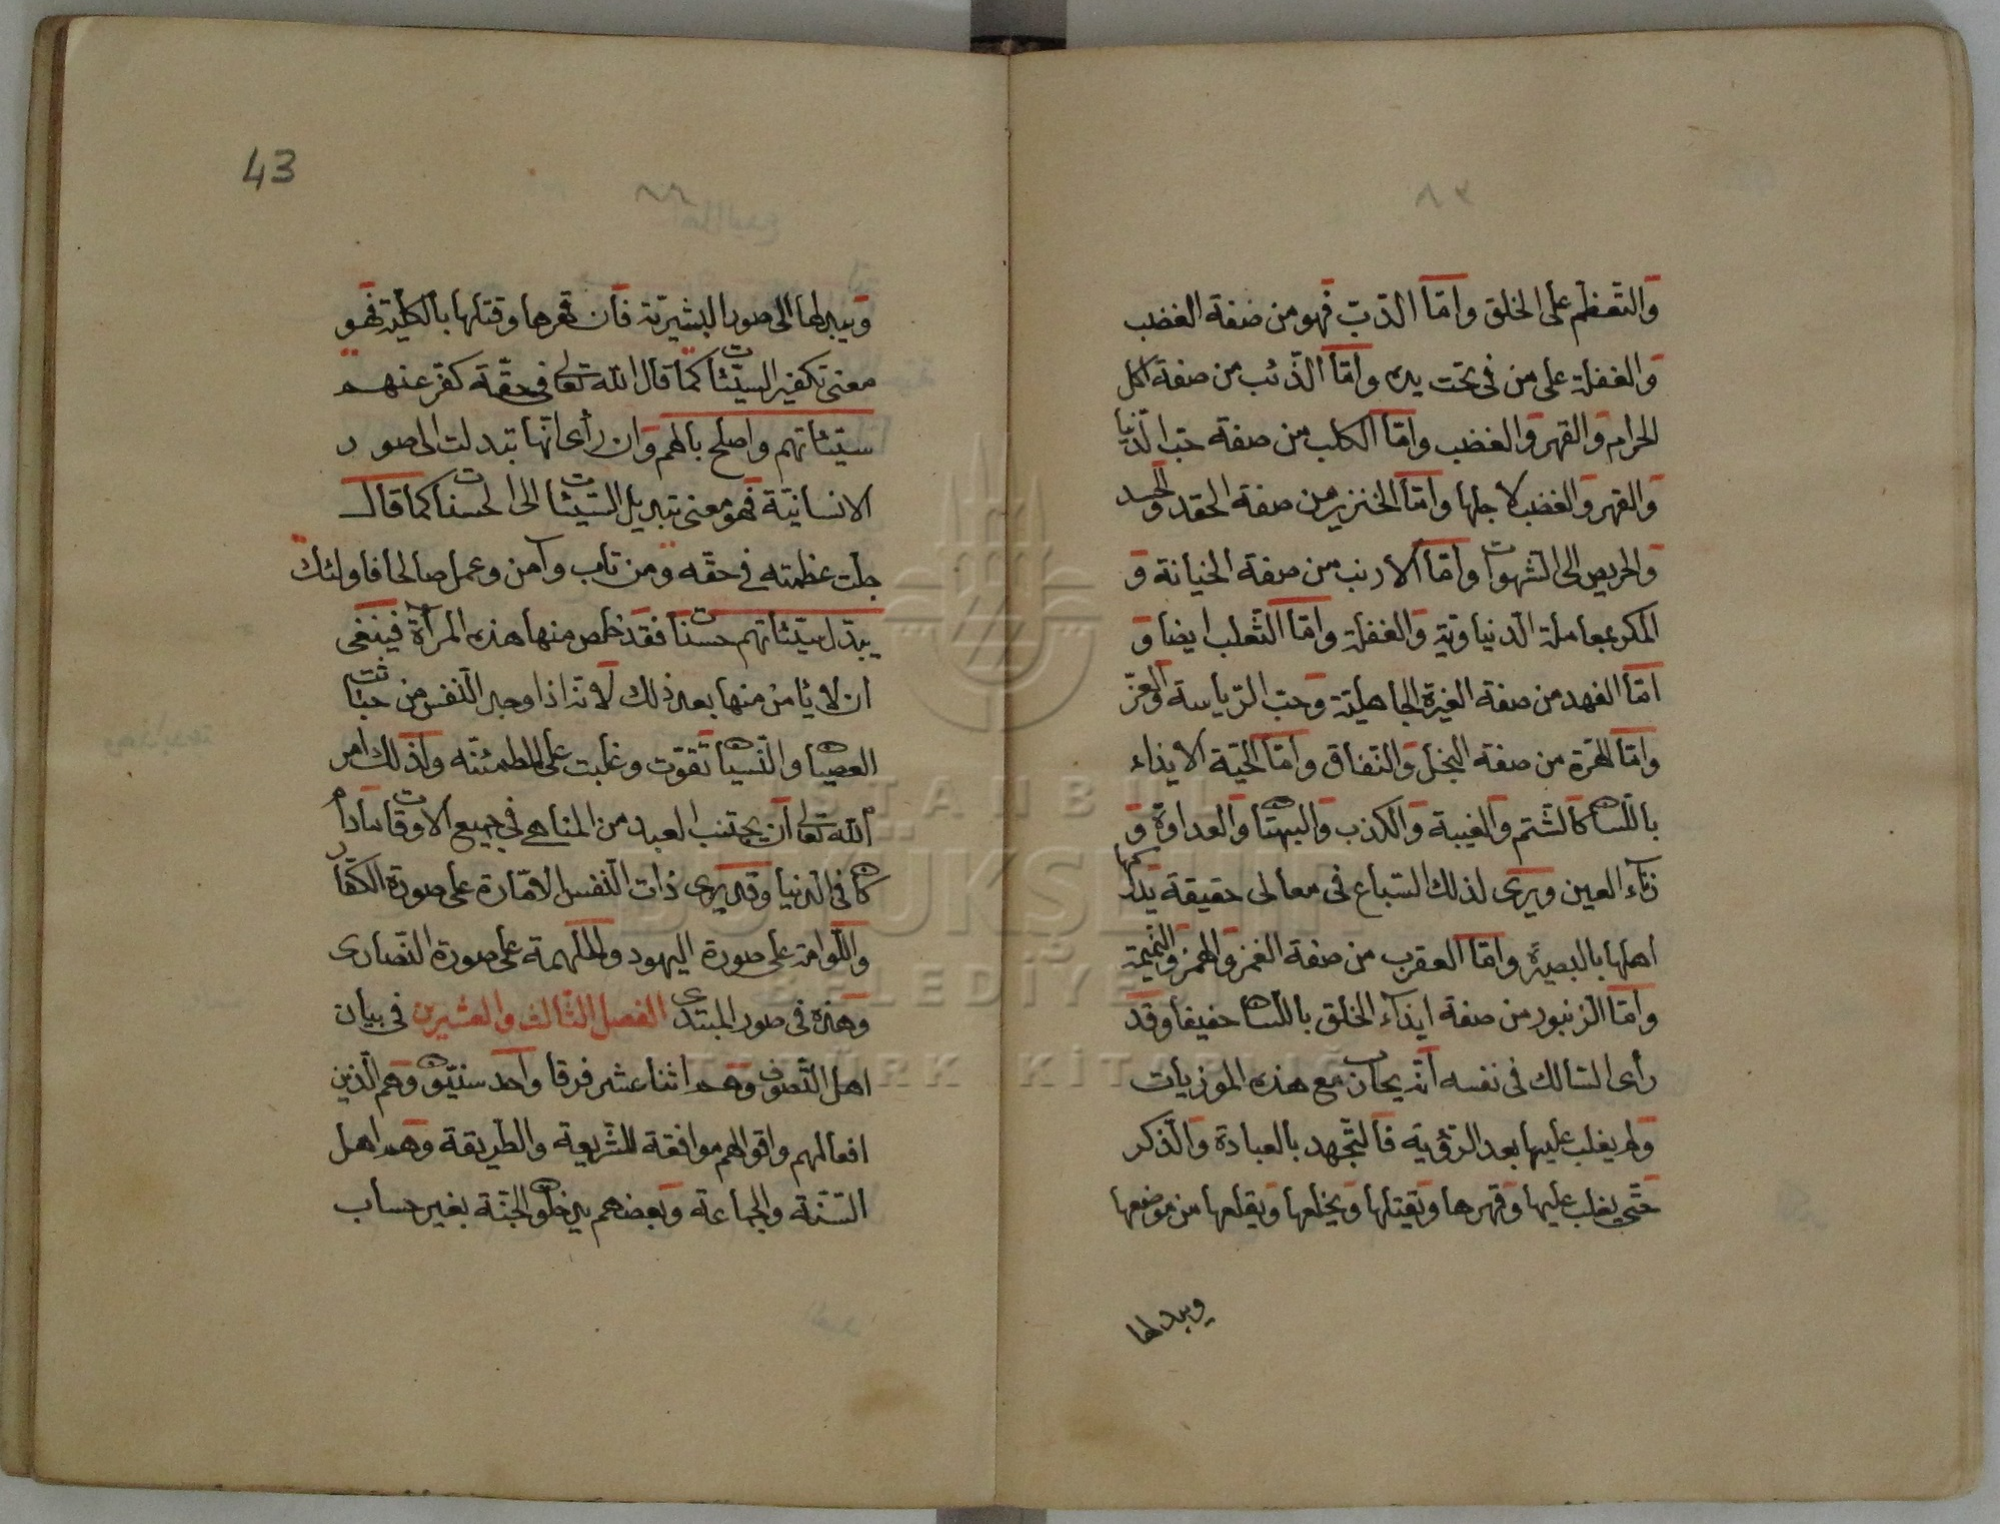 والتعظم على الخلق واما الدب فهو من صفة الغضب
والغفلة على من فى تحت يده واما الذئب من صفة اكل
الحرام والقهر والغضب واما الكلب من صفة حب الدنيا
والقهر والغضب لاجلها واما الخنزير من صفة الحقد والحسد
والحريص الى الشهوات واما الارنب من صفة الخيانة و
المكر بمعاملة الدنياوية والغفلة واما الثعلب ايضا و
اما الفهد من صفة الغيرة الجاهلية وحب الرياسة والعز
واما الهرة من صفة البخل والنفاق واما الحية الايذاء
باللسان كالشتم والغيبة والكذب والبهتان والعداوة و
زناء العين ويرى لذلك السباع فى معالى حقيقة يدركها
اهلها بالبصيرة واما العقرب من صفة الغمز والهمز والنميمة
واما الزنبور من صفة ايذاء الخلق باللسان حفيفا وقد
رأى السالك فى نفسه انه يحارب مع هذه الموزيات
ولم يغلب عليها بعد الرؤية فالتجهد بالعبادة والذكر
حتى يغلب عليها وقهرها ويقتلها ويخلعها ويقلعها من موضعها
ويبدلها
43
ويبدلها الى صور البشرية فان قهرها وقتلها بالكلية فهو
معنى تكفير السيئات كما قال الله تعالى فى حقه كفر عنهم
سيئاتهم واصلح بالهم وان رأى انها تبدلت الى صور
الانسانية فهو معنى تبديل السيئات الى الحسنات كما قال
جلت عظمته فى حقه ومن تاب وآمن وعمل صالحا فاولئك
يبدل سيئاتهم حسنات فقد خلص منها هذه المرآة فينبغى
ان لا يأمن منها بعد ذلك لانه اذا وجد النفس من خبائث
العصيان والنسيان تقوت وغلبت على المطمئنه ولذلك امر
الله تعالى ان يجتنب العبد من المناهى فى جميع الاوقات مادام
كان فى الدنيا وقد يرى ذات النفس الامارة على صورة الكفار
واللوامة على صورة اليهود والملهمة على صورة النصارى
وهذه فى صور المبتدى الفصل الثالث والعشرين فى بيان
اهل التصوف وهم اثنا عشر فرقا واحد سنيون وهم الذين
افعالهم واقوالهم موافقة للشريعة والطريقة وهم اهل
السنة والجماعة وبعضهم يدخلون الجنة بغير حساب